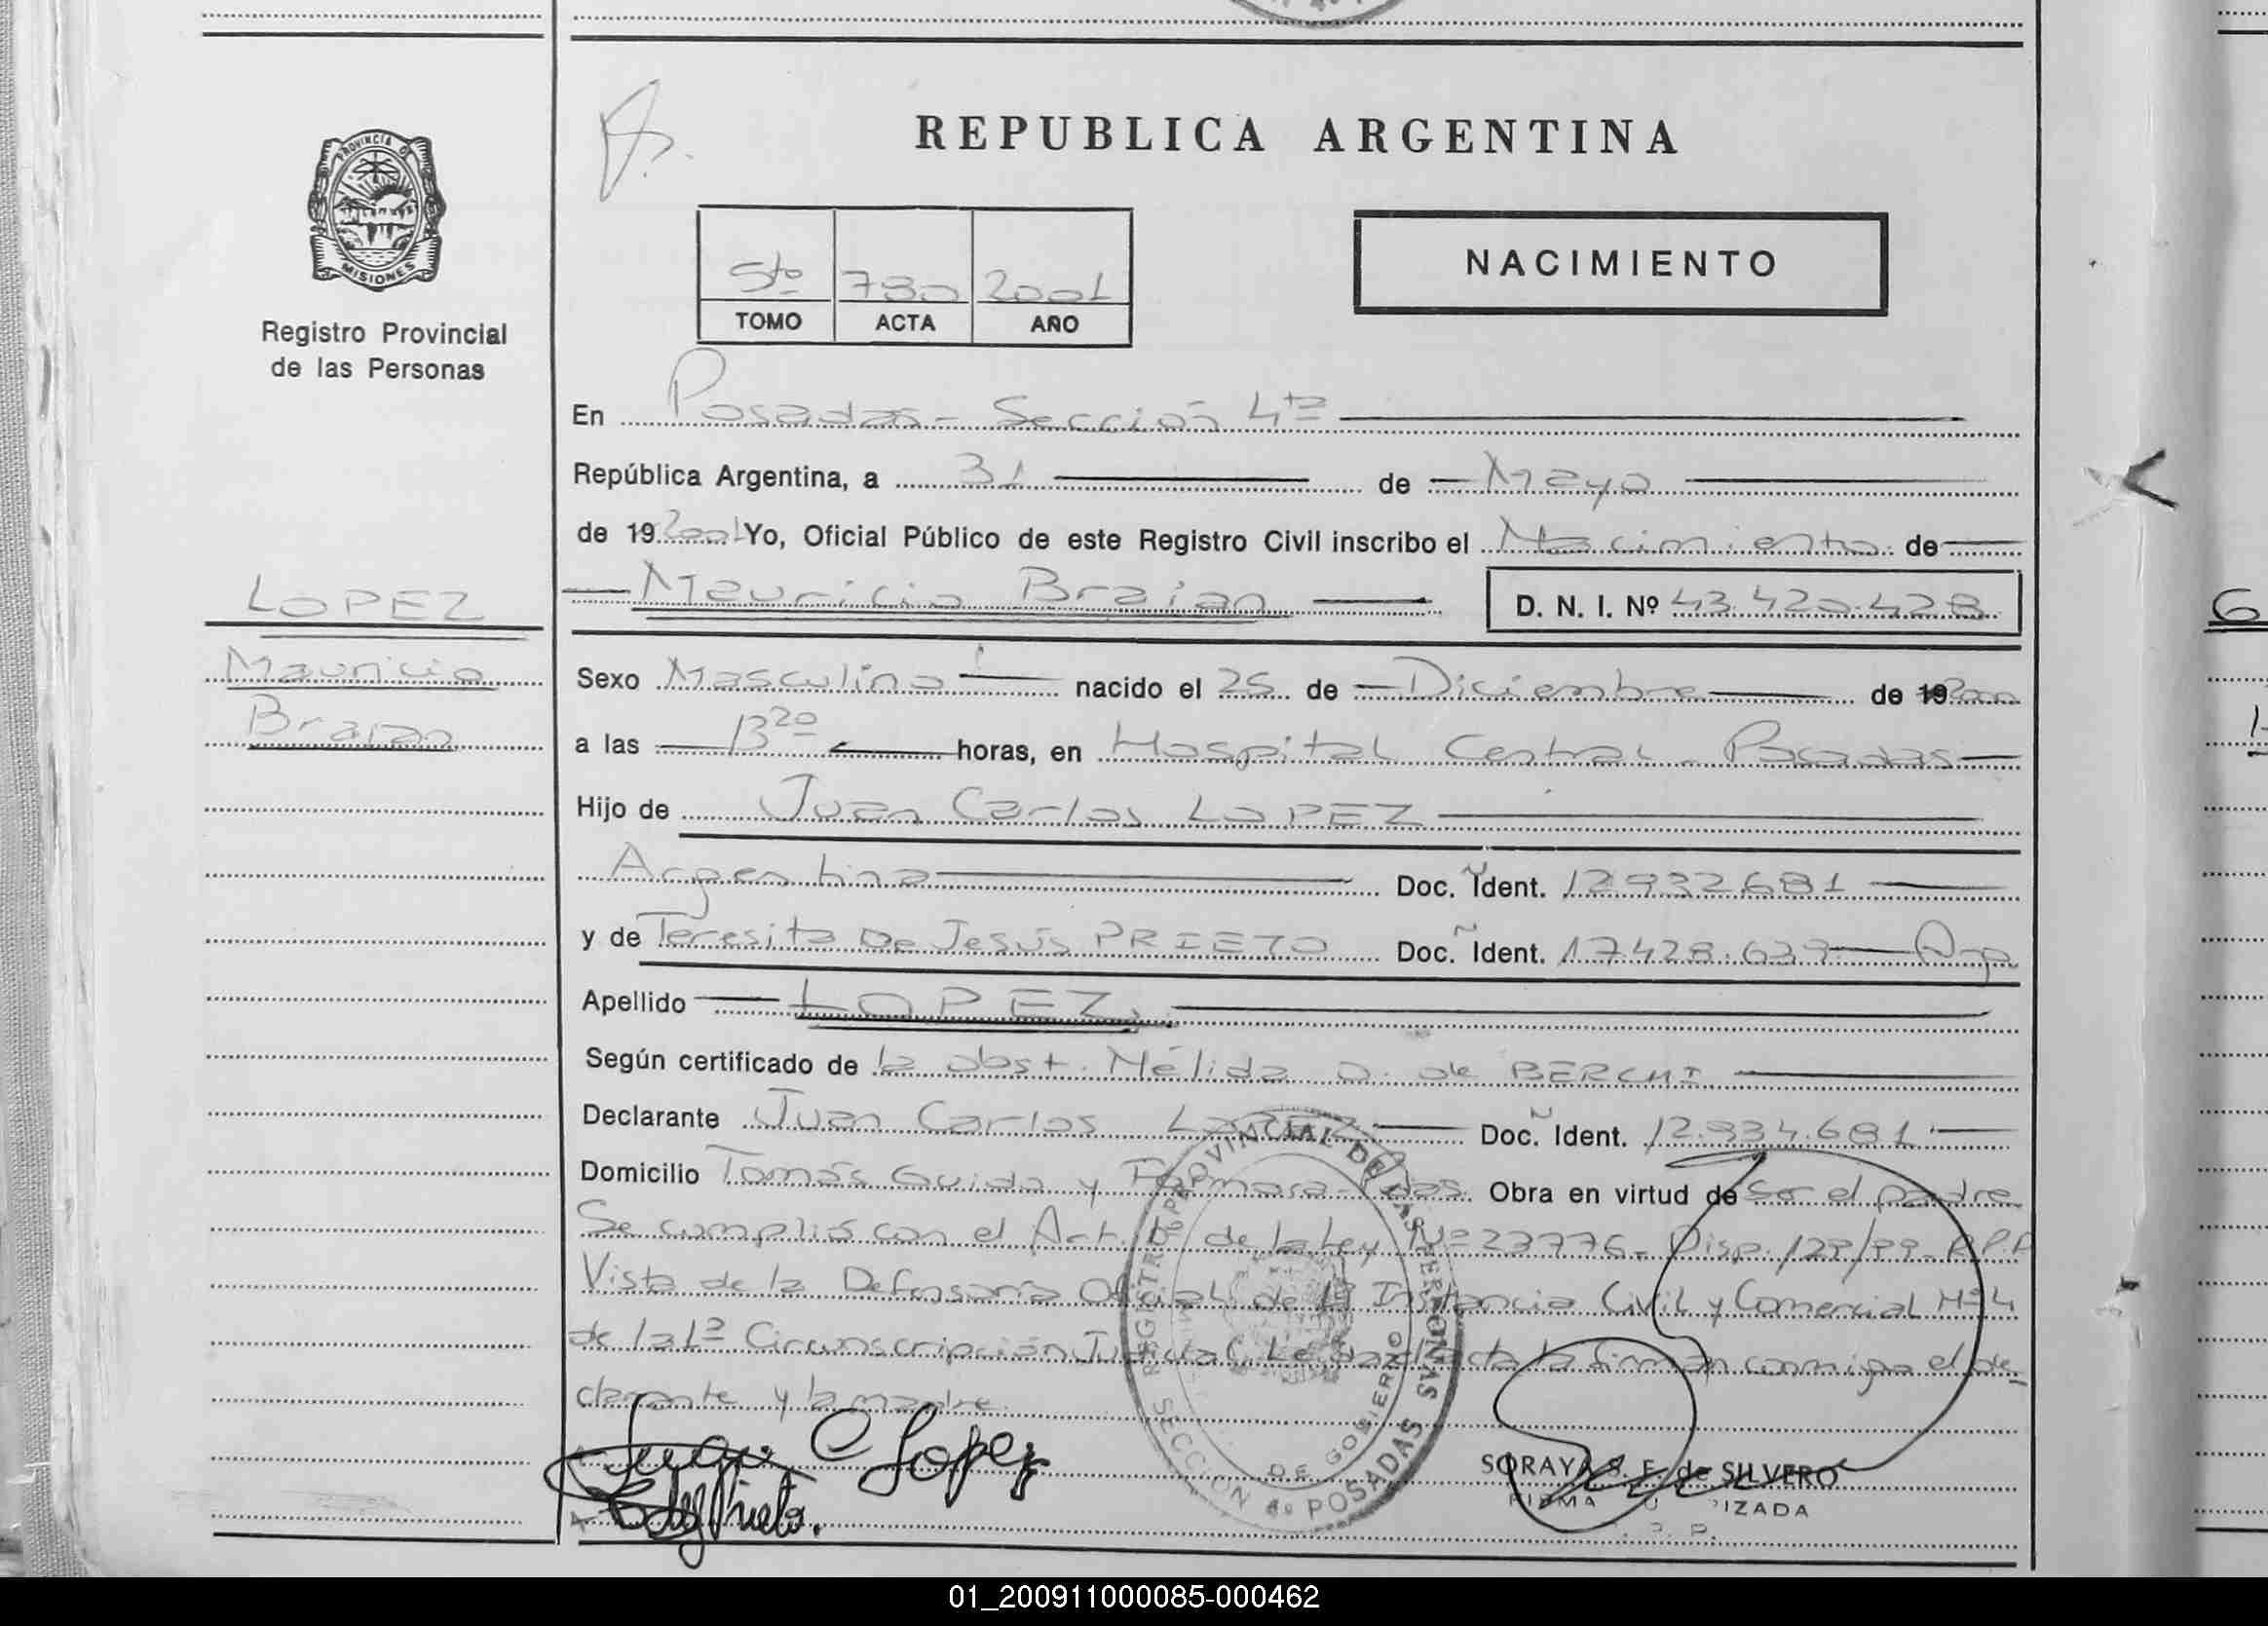 REPUBLICA ARGENTINA
PROVINCIA D MISIONES
Registro Provincial
de las Personas
5to 780 2001
TOMO ACTA AÑO
NACIMIENTO
En Posadas - Sección 4ta
República Argentina, a 31 de Mayo
de 19 2001 Yo, Oficial Público de este Registro Civil inscribo el Nacimiento de
Mauricio Braian D. N. I. Nº 43.420.428
LOPEZ
Mauricio
Braian
Sexo Masculino nacido el 25 de Diciembre de 19 2000
a las 13 20 horas, en Hospital Central - Posadas
Hijo de Juan Carlos LOPEZ
Argentina Doc. Ident. 12932681
y de Teresita De Jesús PRIETO Doc. Ident. 17.428.639 Arg
Apellido LOPEZ
Según certificado de la obst. Nélida O. de BERCHI
Declarante Juan Carlos LOPEZ Doc. Ident. 12.934.681
Domicilio Tomás Guido y Pdas. Obra en virtud de ser el padre
Se cumplió con el Art. 1º de la Ley Nº 23776 - Disp. 129/99 - R.P.P
Vista de la Defensoría Oficial de 1ª Instancia Civil y Comercial Nº 4
de la 1ª Circunscripción Judicial. Leída el acta la firman conmigo el de-
clarante y la madre
REGISTRO PROVINCIAL DE LAS PERSONAS
DE GOBIERNO
SECCION 4º POSADAS
Juan C Lopez
Prieto.
SORAYA S. F. de SILVERO
FIRMA IZADA
01_200911000085-000462